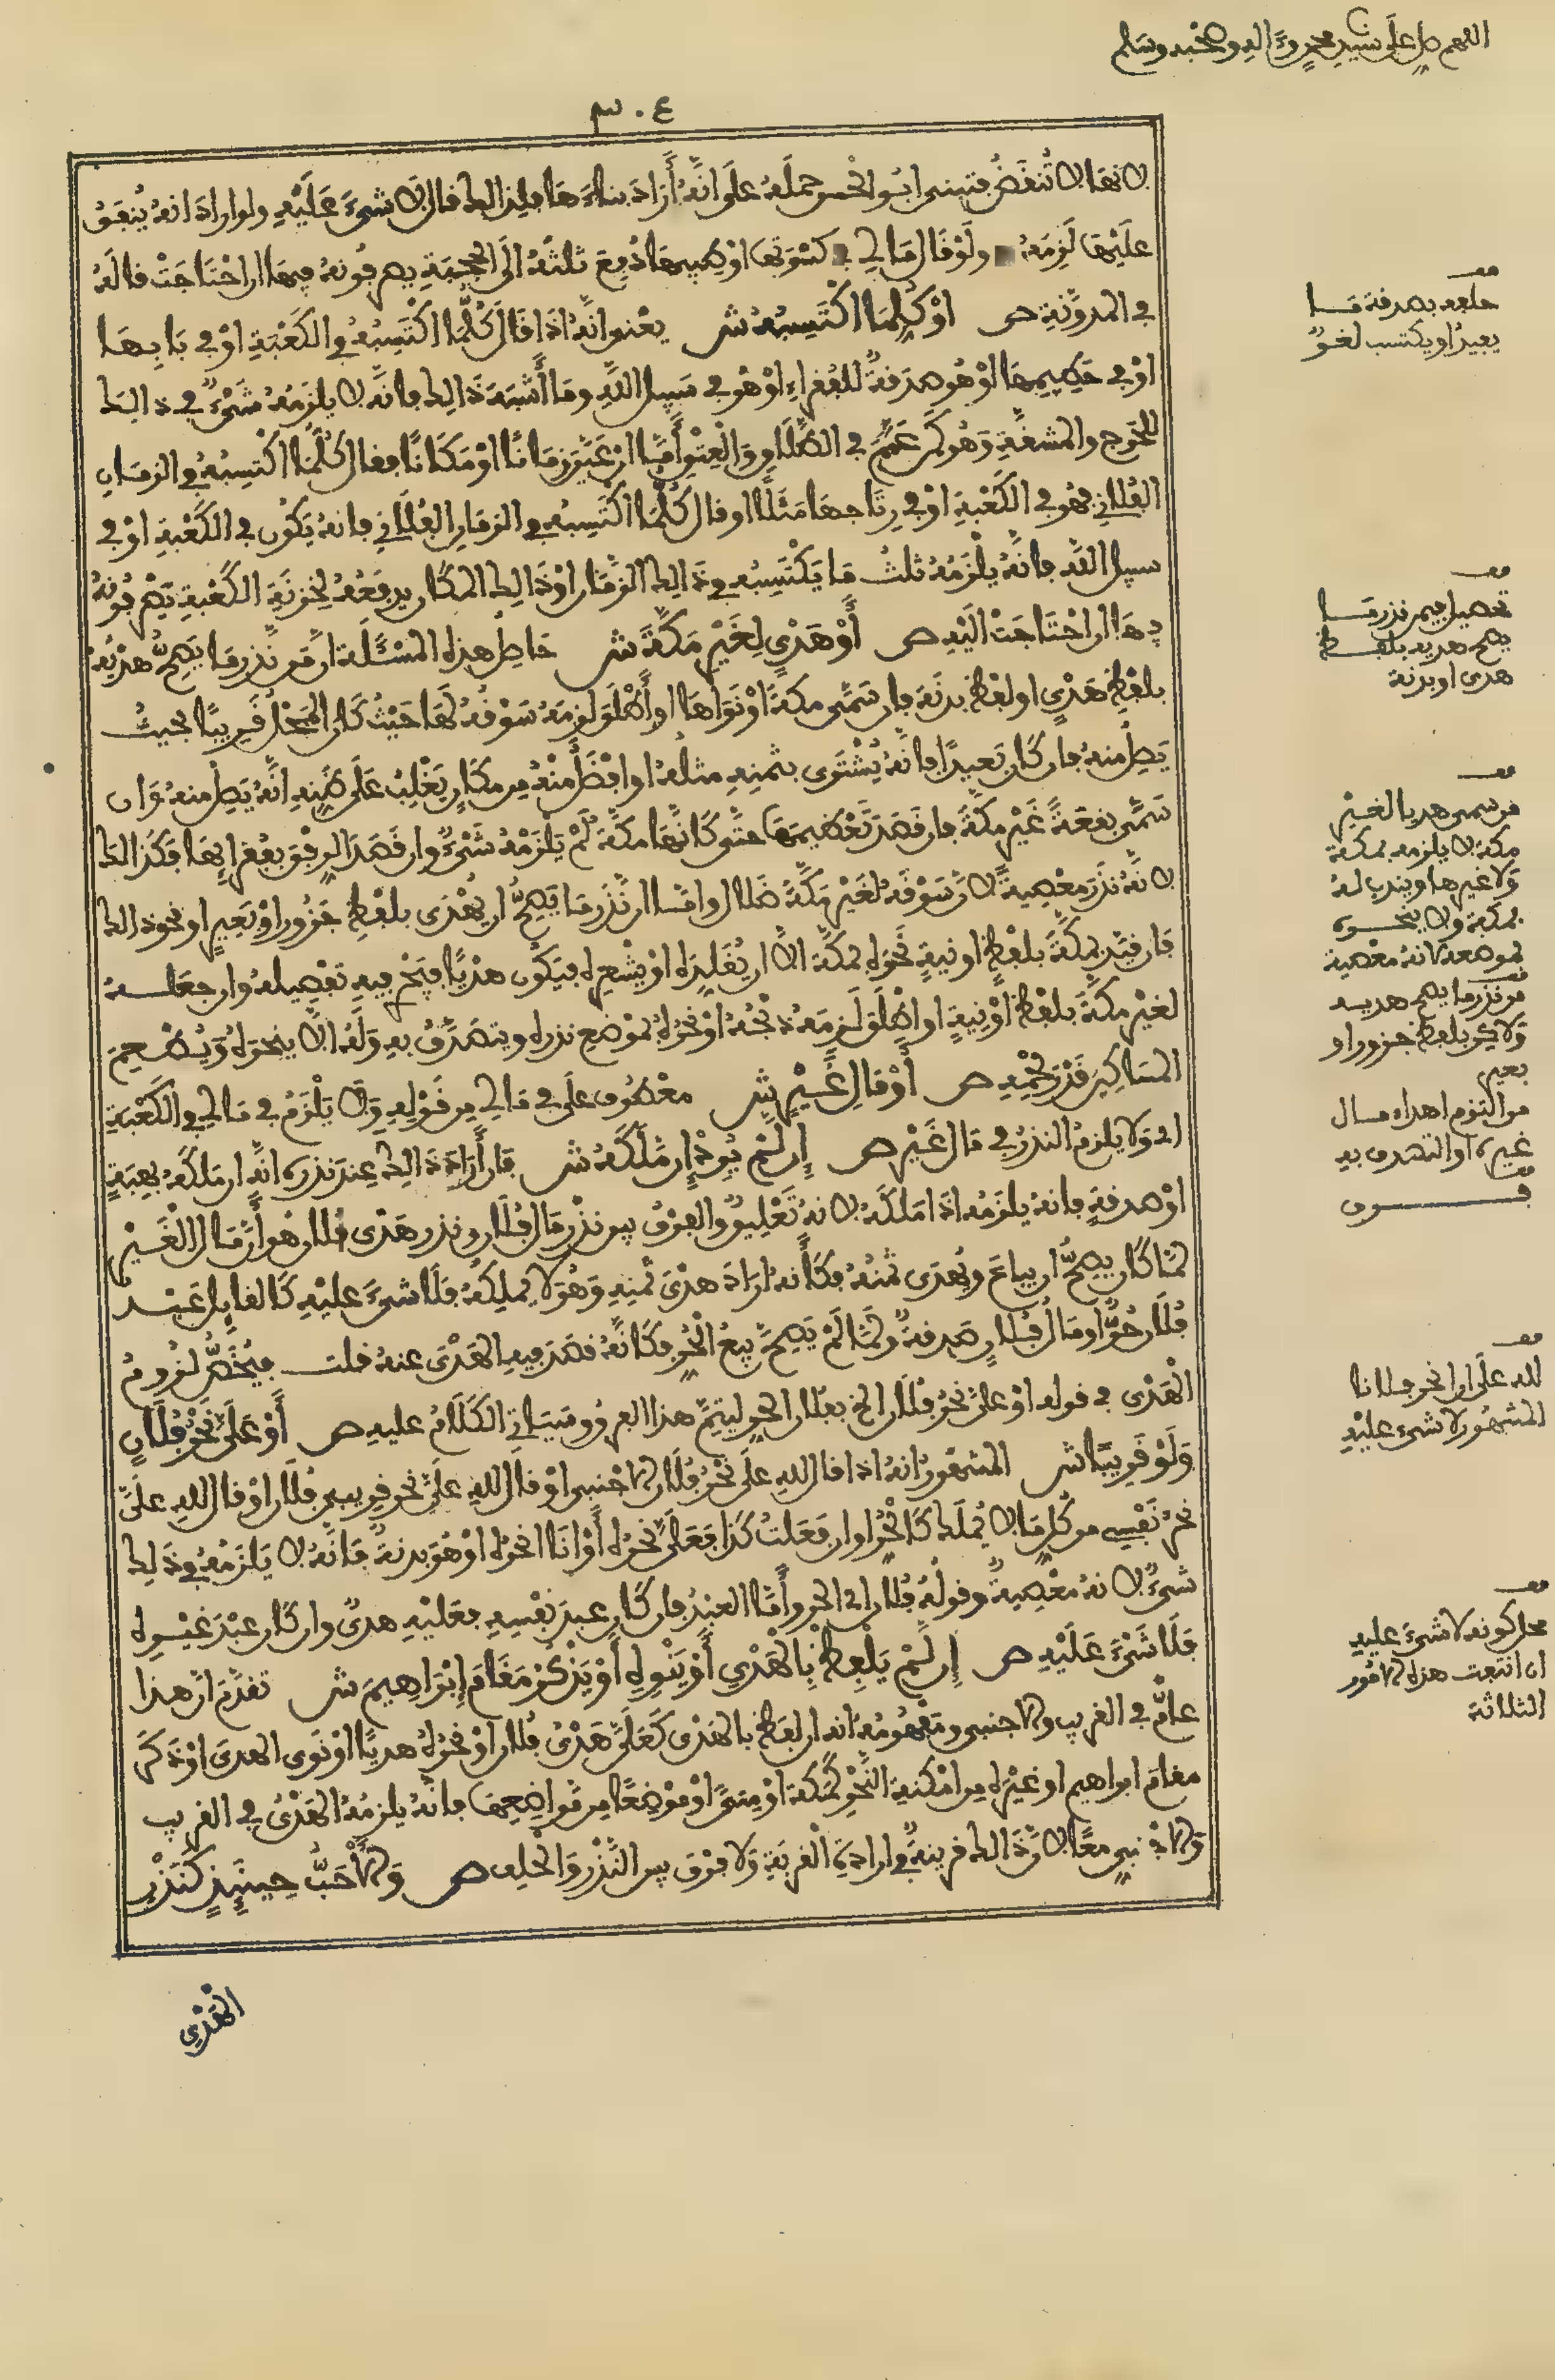 اللهم صل على سيدنا محمد وعلى اله وصحبه وسلم
٣٠٤
لانها لا تنقض فتبنى ابو الحسن حمله على انه أراد بناءها فلذلك قال لا شيء عليه ولو اراد انه ينفق
عليها لزمه ولو قال مالي في كسوتها او طيبها دفع ثلثه الى الحجبة يصرفونه فيها ان احتاجت قاله
في المدونة ص او كلما اكتسبه ش يعني انه اذا قال كلما اكتسبه في الكعبة او في بابها
او في حطيمها او هو صدقة للفقراء او هو في سبيل الله وما أشبه ذالك فانه لا يلزمه شيء في ذالك
للحرج والمشقة وهو كمن عمم في الطلاق والعتق أما ان عين زمانا او مكانا فقال كلما اكتسبه في الزمان
الفلاني فهو في الكعبة او في رتاجها مثلا او قال كلما اكتسبه في الزمان الفلاني فانه يكون في الكعبة او في
سبيل الله فانه يلزمه ثلث ما يكتسبه في ذالك الزمان او ذالك المكان يدفعه لخزنة الكعبة يصرفونه
بها ان احتاجت اليه ص أو هدي لغير مكة ش حاصل هذه المسئلة ان من نذر ما يصح هديه
بلفظ هدي او لفظ بدنة فان سمى مكة او نواها او أطلق لزمه سوقه لها حيث كان المحل قريبا بحيث
يصل منه فان كان بعيدا فانه يشترى بثمنه مثله او افضل منه من مكان يغلب على ظنه انه يصل منه وان
سمى بقعة غير مكة فان قصد تعظيمها حتى كانها مكة لم يلزمه شيء وان قصد الرفق بفقرائها فكذالك
لانه نذر معصية لان سوقه لغير مكة ضلال واما ان نذر ما يصح ان يهدى بلفظ جزور او بعير او نحو ذالك
فان قيد بمكة بلفظ او نية نحره بمكة الا ان يقلده او يشعره فيكون هديا فيجري فيه تفصيله وان جعله
لغير مكة بلفظ أو نية او أطلق لزمه ذبحه او نحره بموضع نذره ويتصدق به وله الا ينحره ويطعم
المساكين قدر لحمه ص أو قال غير ش معطوف على في مالي من قوله ولا يلزم في مالي في الكعبة
اي ولا يلزم النذر في مال غير ص إن لم يرد إن ملكه ش فان أراد ذالك عند نذره انه ان ملكه بهبة
او صدقة فانه يلزمه اذا ملكه لانه تعليق والفرق بين نذر مال فلان ونذر هدي فلان هو أن مال الغير
لما كان يصح ان يباع ويهدى ثمنه فكأنه اراد هدي ثمنه وهو لا يملكه فلا شيء عليه كالقايل عبد
فلان حر او مال فلان صدقة ولما لم يصح بيع الحر فكانه قصد فيه الهدي عنه قلت فيختص لزوم
الهدي في قوله او علي نحر فلان الخ بفلان الحر ليتم هذا الفرق وسياتي الكلام عليه ص أو علي نحر فلان
ولو قريبا ش المشهور انه اذا قال لله علي نحر فلان لاجنبي او قال لله علي نحر قريبي فلان او قال لله علي
نحر نفسي من كل ما لا يملك كالحر او ان فعلت كذا فعلي نحره أو انا انحره او هو بدنة فانه لا يلزمه في ذالك
شيء لانه معصية وقوله فلان اي الحر وأما العبد فان كان عبد نفسه فعليه هدي وان كان عبد غيره
فلا شيء عليه ص إن لم يلفظ بالهدي أو ينوه أو يذكر مقام إبراهيم ش تقدم ان هذا
عام في القريب والاجنبي ومفهومه انه ان لفظ بالهدي كعلي هدي فلان او نحره هديا او نوى الهدي او ذكر
مقام ابراهيم او غيره من امكنة النحر كمكة او منى او موضعا من مواضعها فانه يلزمه الهدي في القريب
والاجنبي معا لان ذالك قرينة في ارادة القربة ولا فرق بين النذر والحلف ص والأحب حينئذ كنذر
الهدي
قف
حلفه بصدقة ما
يفيد او يكتسب لغو
قف
تفصيل فيمن نذر ما
يصح هديه بلفظ
هدي او بدنة
قف
من سمى هديا لغير
مكة لا يلزمه بمكة
ولا غيرها ويندب له
بمكة ولا ينحره
بموضعه لانه معصية
من نذر ما يصح هديه
ولاكن بلفظ جزور او
بعير
من التزم اهداء مال
غيره او التصدق به
قف
لله علي ان انحر فلانا
المشهور لا شيء عليه
قف
محل كونه لا شيء عليه
ان انتفت هذه الامور
الثلاثة